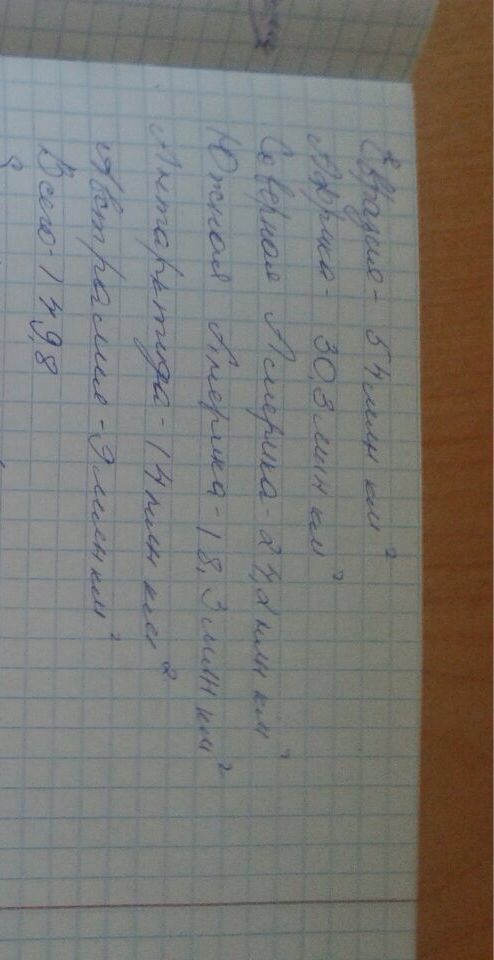 Евразия - 54 млн км²
Африка - 30,3 млн км²
Северная Америка - 24,2 млн км²
Южная Америка - 18,3 млн км²
Антарктида - 14 млн км²
Австралия - 9 млн км²
Всего - 149,8